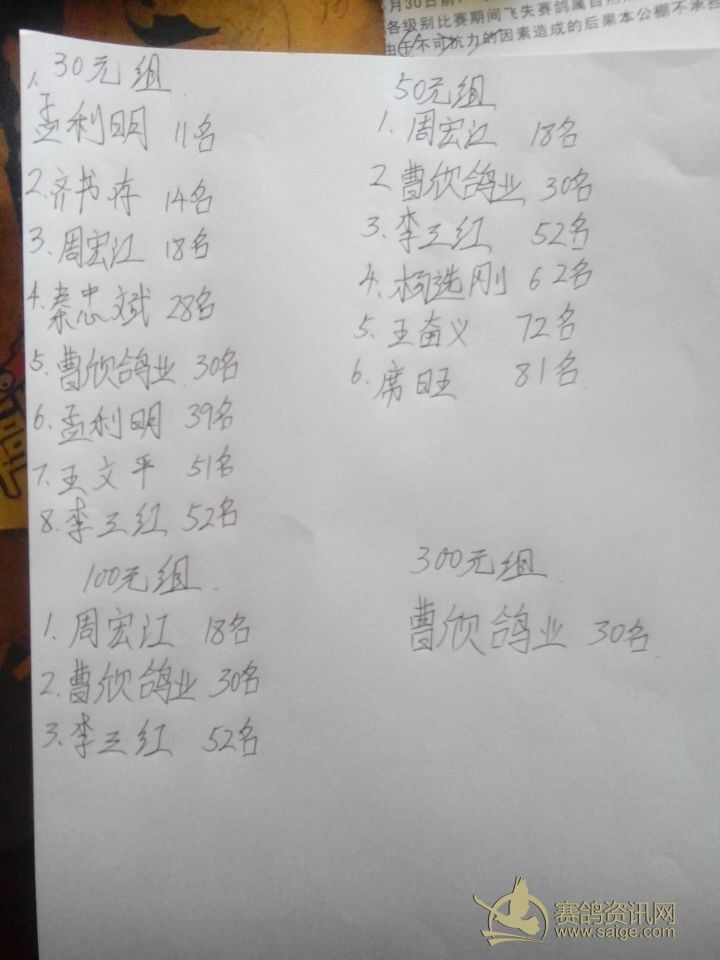 月30日前
各级别比赛期间飞失赛鸽属自然
由于不可抗力的因素造成的后果本公棚不承担
30元组
1、孟利明 11名
2、齐书存 14名
3、周宏江 18名
4、秦忠斌 28名
5、曹欣鸽业 30名
6、孟利明 39名
7、王文平 51名
8、李三红 52名
50元组
1、周宏江 18名
2、曹欣鸽业 30名
3、李三红 52名
4、杨选刚 62名
5、王奋义 72名
6、席旺 81名
100元组
1、周宏江 18名
2、曹欣鸽业 30名
3、李三红 52名
300元组
曹欣鸽业 30名
赛鸽资讯网
www.saige.com